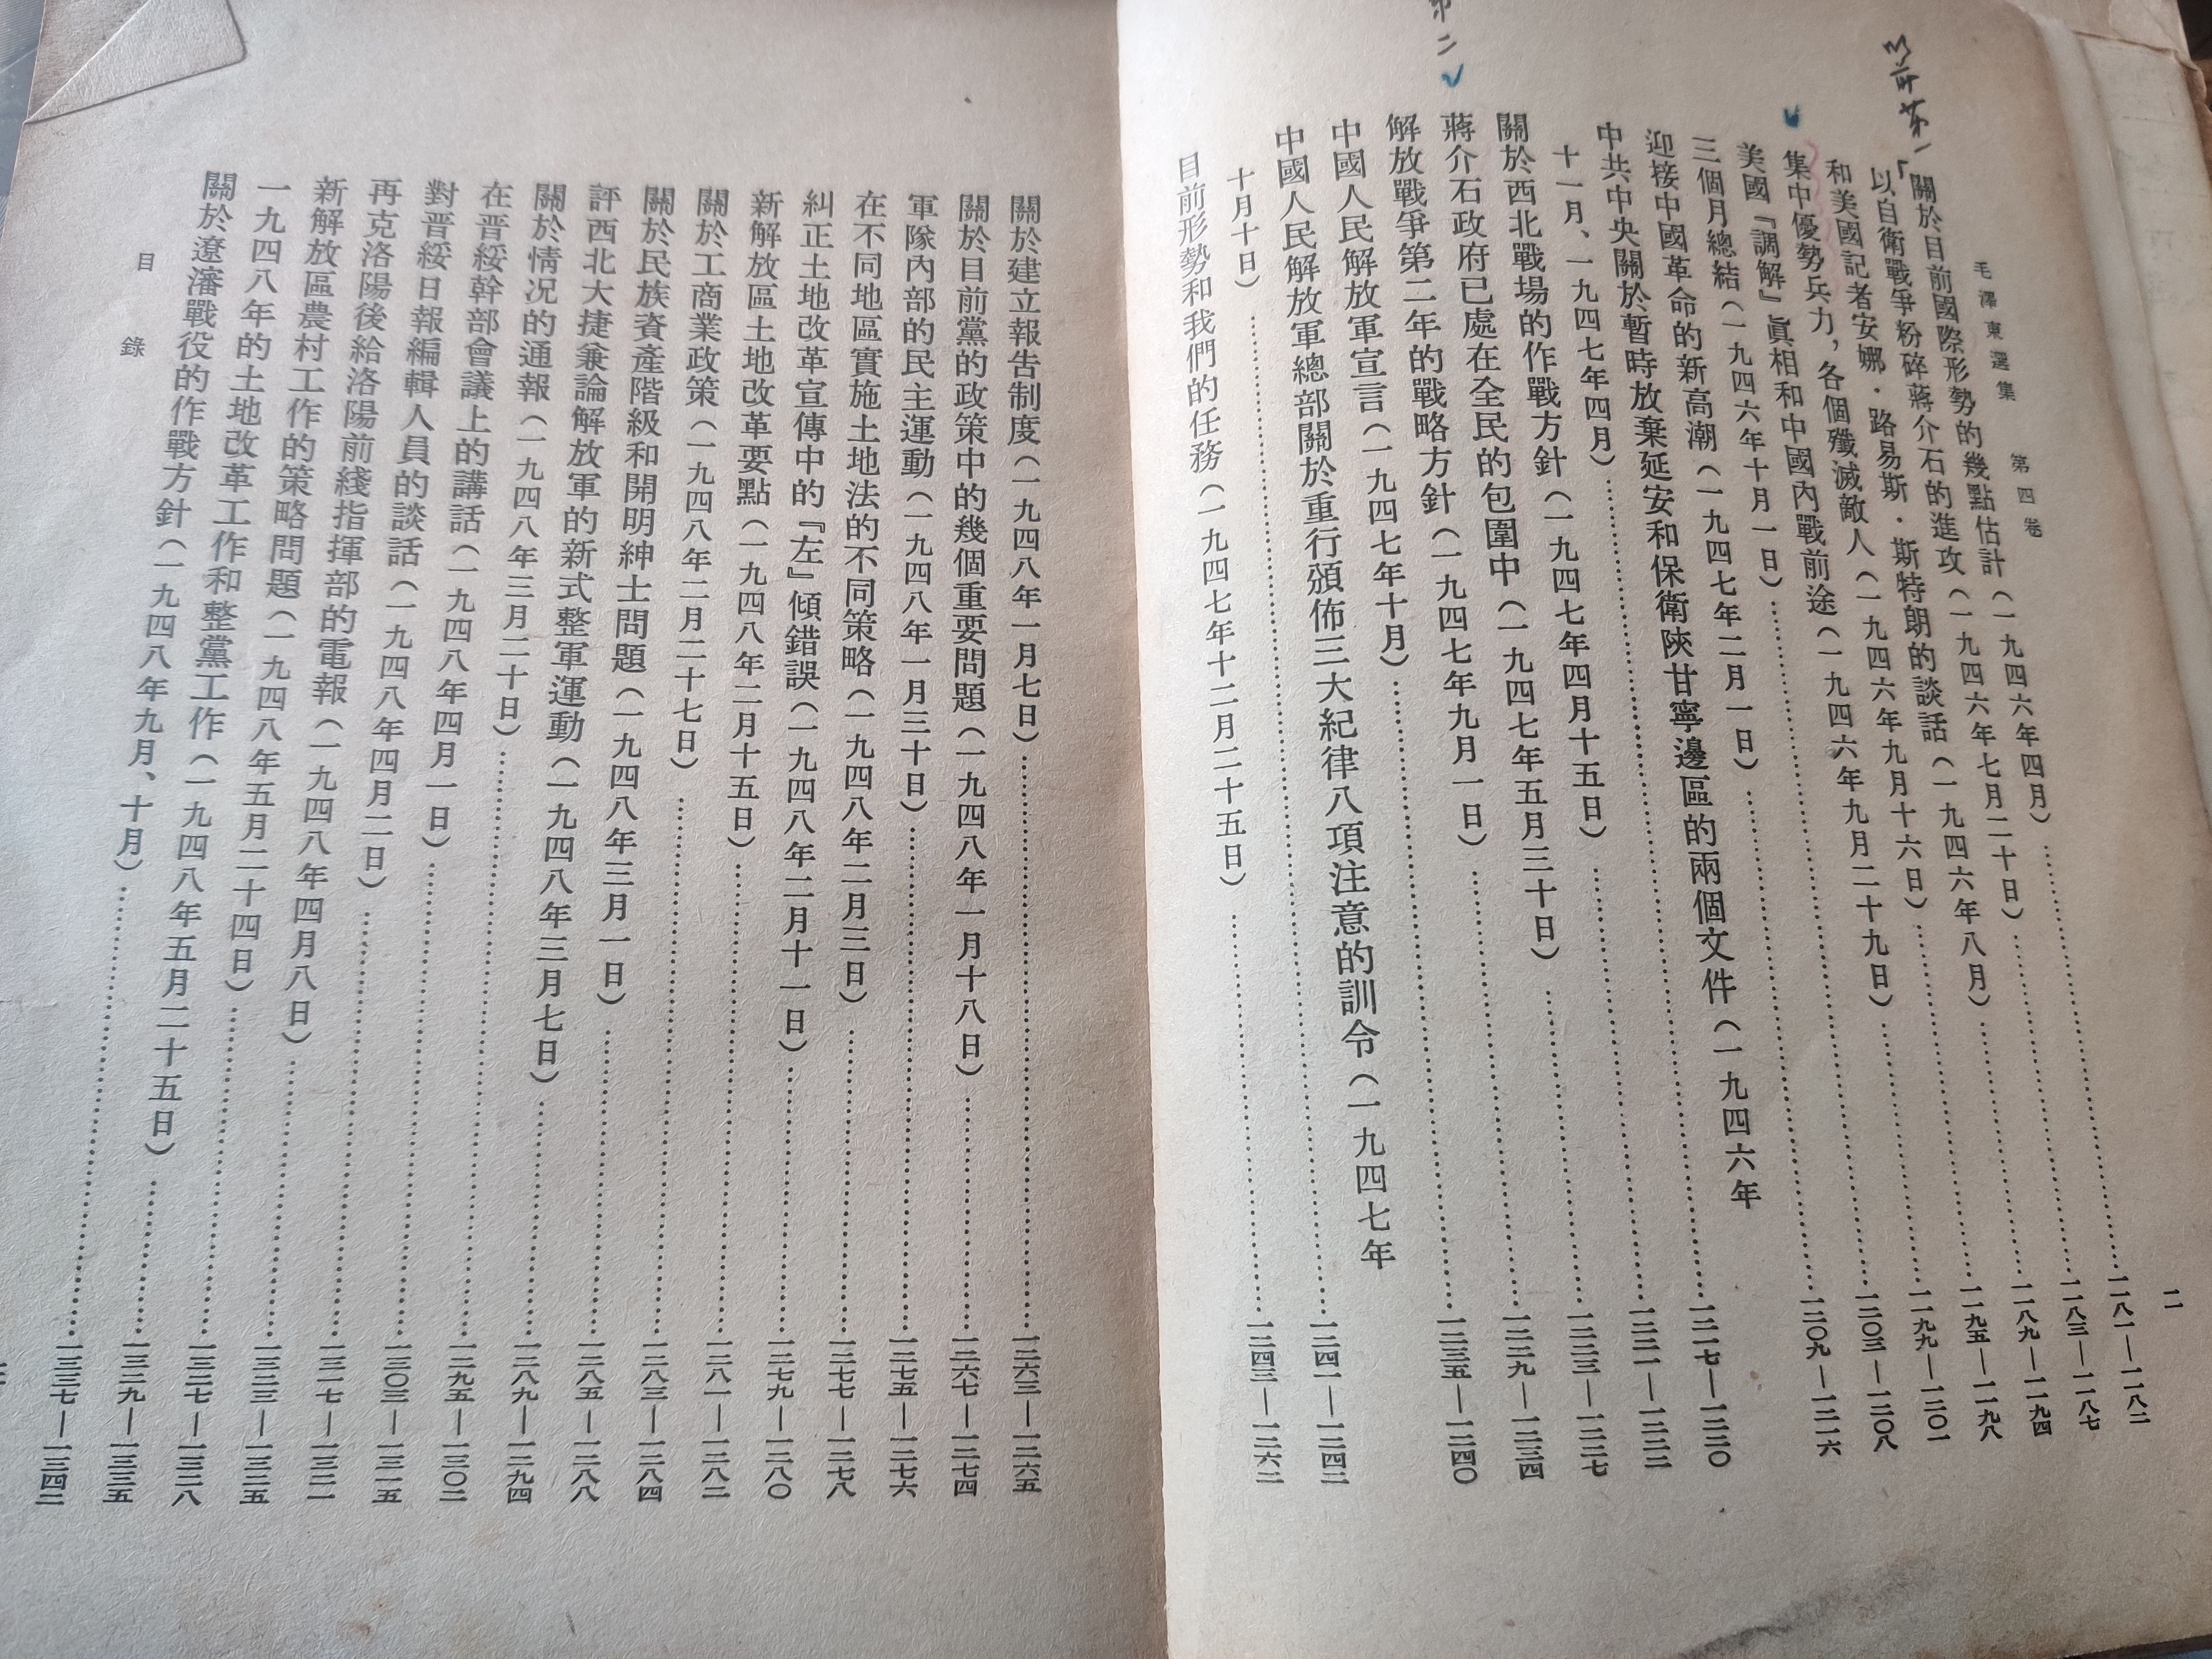 毛澤東選集　第四卷
二
第一
「關於目前國際形勢的幾點估計（一九四六年四月）……一一八一—一一八二
以自衛戰爭粉碎蔣介石的進攻（一九四六年七月二十日）……一一八三—一一八七
和美國記者安娜·路易斯·斯特朗的談話（一九四六年八月）……一一八九—一一九四
集中優勢兵力，各個殲滅敵人（一九四六年九月十六日）……一一九五—一一九八
美國『調解』眞相和中國內戰前途（一九四六年九月二十九日）……一一九九—一二〇一
三個月總結（一九四六年十月一日）……一二〇三—一二〇八
迎接中國革命的新高潮（一九四七年二月一日）……一二〇九—一二一六
中共中央關於暫時放棄延安和保衛陝甘寧邊區的兩個文件（一九四六年
十一月、一九四七年四月）……一二一七—一二二〇
關於西北戰場的作戰方針（一九四七年四月十五日）……一二二一—一二二二
蔣介石政府已處在全民的包圍中（一九四七年五月三十日）……一二二三—一二二七
解放戰爭第二年的戰略方針（一九四七年九月一日）……一二二九—一二三四
中國人民解放軍宣言（一九四七年十月）……一二三五—一二四〇
中國人民解放軍總部關於重行頒佈三大紀律八項注意的訓令（一九四七年
十月十日）……一二四一—一二四二
目前形勢和我們的任務（一九四七年十二月二十五日）……一二四三—一二六二
第二
關於建立報告制度（一九四八年一月七日）……一二六三—一二六五
關於目前黨的政策中的幾個重要問題（一九四八年一月十八日）……一二六七—一二七四
軍隊內部的民主運動（一九四八年一月三十日）……一二七五—一二七六
在不同地區實施土地法的不同策略（一九四八年二月三日）……一二七七—一二七八
糾正土地改革宣傳中的『左』傾錯誤（一九四八年二月十一日）……一二七九—一二八〇
新解放區土地改革要點（一九四八年二月十五日）……一二八一—一二八二
關於工商業政策（一九四八年二月二十七日）……一二八三—一二八四
關於民族資產階級和開明紳士問題（一九四八年三月一日）……一二八五—一二八八
評西北大捷兼論解放軍的新式整軍運動（一九四八年三月七日）……一二八九—一二九四
關於情况的通報（一九四八年三月二十日）……一二九五—一三〇二
在晋綏幹部會議上的講話（一九四八年四月一日）……一三〇三—一三一五
對晋綏日報編輯人員的談話（一九四八年四月二日）……一三一七—一三二一
再克洛陽後給洛陽前綫指揮部的電報（一九四八年四月八日）……一三二三—一三二五
新解放區農村工作的策略問題（一九四八年五月二十四日）……一三二七—一三二八
一九四八年的土地改革工作和整黨工作（一九四八年五月二十五日）……一三二九—一三三五
關於遼瀋戰役的作戰方針（一九四八年九月、十月）……一三三七—一三四二
目　錄